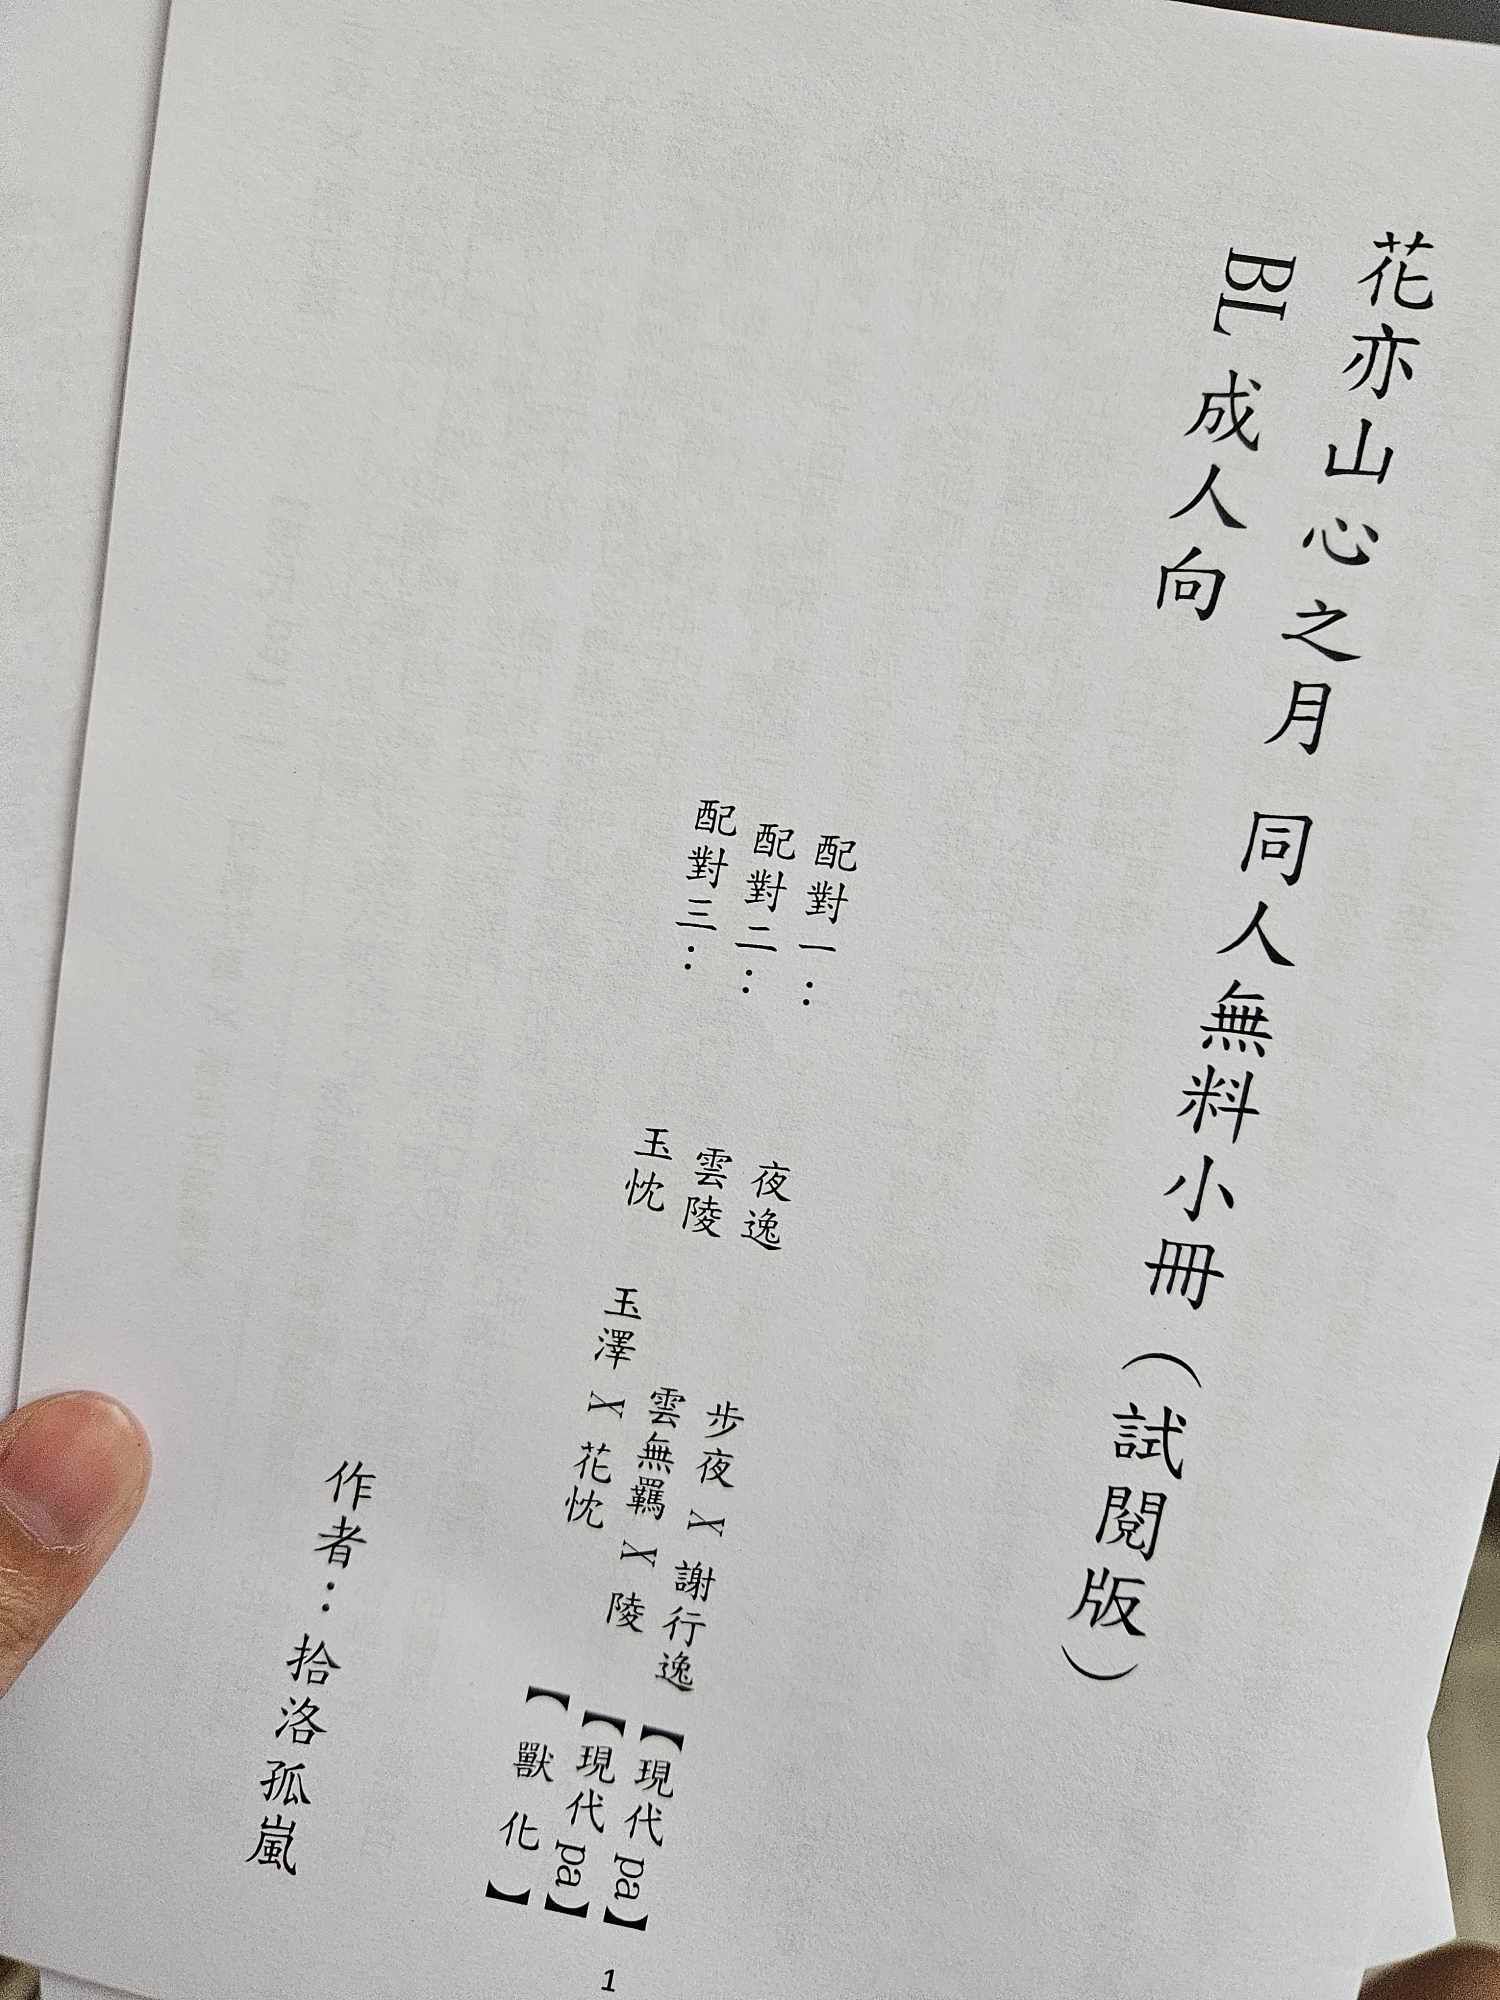 花亦山心之月 同人無料小冊（試閱版）
BL 成人向
配對一： 夜逸 步夜 X 謝行逸【現代 pa】
配對二： 雲陵 雲無羈 X 陵【現代 pa】
配對三： 玉忱 玉澤 X 花忱【獸化】
作者：拾洛孤嵐
1